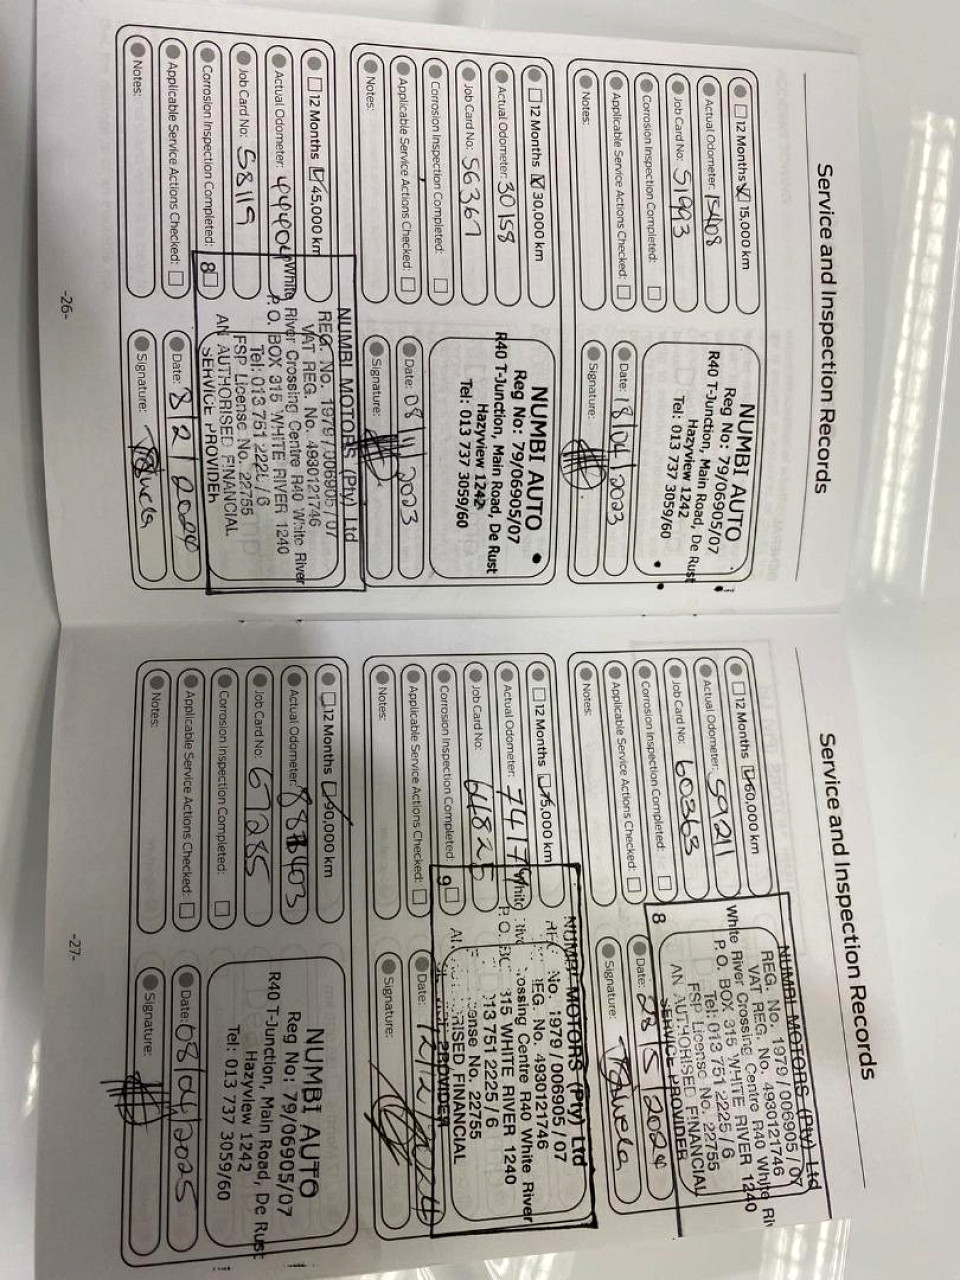 Service and Inspection Records
12 Months 15,000 km
Actual Odometer: 15408
Job Card No: 51993
Corrosion Inspection Completed:
Applicable Service Actions Checked:
Notes:
NUMBI AUTO
Reg No: 79/06905/07
R40 T-Junction, Main Road, De Rust
Hazyview 1242
Tel: 013 737 3059/60
Date: 18/04/2023
Signature:
12 Months 30,000 km
Actual Odometer: 30158
Job Card No: 56367
Corrosion Inspection Completed:
Applicable Service Actions Checked:
Notes:
NUMBI AUTO
Reg No: 79/06905/07
R40 T-Junction, Main Road, De Rust
Hazyview 1242
Tel: 013 737 3059/60
Date: 08/11/2023
Signature:
12 Months 45,000 km
Actual Odometer:
Job Card No: 58119
Corrosion Inspection Completed:
Applicable Service Actions Checked:
Notes:
NUMBI MOTORS (Pty) Ltd
REG. No. 1979/006905/07
VAT REG. No. 4930121746
White River Crossing Centre R40 White River
P.O. BOX 315 WHITE RIVER 1240
Tel: 013 751 2225/6
FSP License No. 22755
AN AUTHORISED FINANCIAL
SERVICE PROVIDER
8
Date: 8/2/2024
Signature:
-26-
Service and Inspection Records
12 Months 60,000 km
Actual Odometer: 59291
Job Card No: 60363
Corrosion Inspection Completed:
Applicable Service Actions Checked:
Notes:
NUMBI MOTORS (Pty) Ltd
REG. No. 1979/006905/07
VAT REG. No. 4930121746
White River Crossing Centre R40 White Riv
P.O. BOX 315 WHITE RIVER 1240
Tel: 013 751 2225/6
FSP License No. 22755
AN AUTHORISED FINANCIAL
SERVICE PROVIDER
8
Date: 28/5/2024
Signature:
12 Months 75,000 km
Actual Odometer:
Job Card No:
Corrosion Inspection Completed:
Applicable Service Actions Checked:
Notes:
NUMBI MOTORS (Pty) Ltd
No. 1979/006905/07
REG. No. 4930121746
White River Crossing Centre R40 White River
P.O. BOX 315 WHITE RIVER 1240
013 751 2225/6
License No. 22755
AUTHORISED FINANCIAL
PROVIDER
9
Date: 12/12/2024
Signature:
12 Months 90,000 km
Actual Odometer:
Job Card No: 67285
Corrosion Inspection Completed:
Applicable Service Actions Checked:
Notes:
NUMBI AUTO
Reg No: 79/06905/07
R40 T-Junction, Main Road, De Rust
Hazyview 1242
Tel: 013 737 3059/60
Date: 08/04/2025
Signature:
-27-